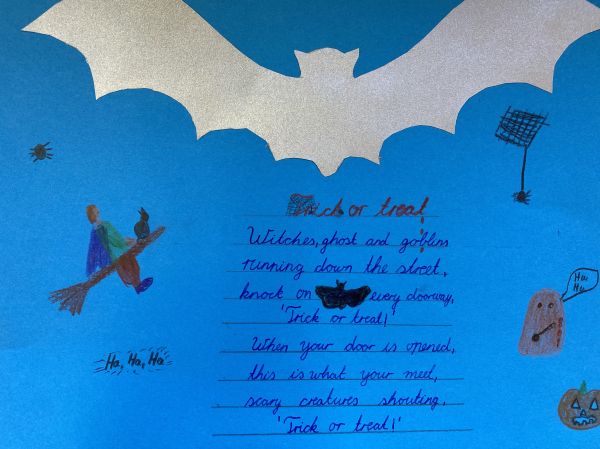 Trick or treat
Witches, ghost and goblins
running down the street,
knock on every doorway,
'Trick or treat!'
When your door is opened,
this is what your meet,
scary creatures shouting,
'Trick or treat!'
Ha, Ha, Ha
Hu
Hu